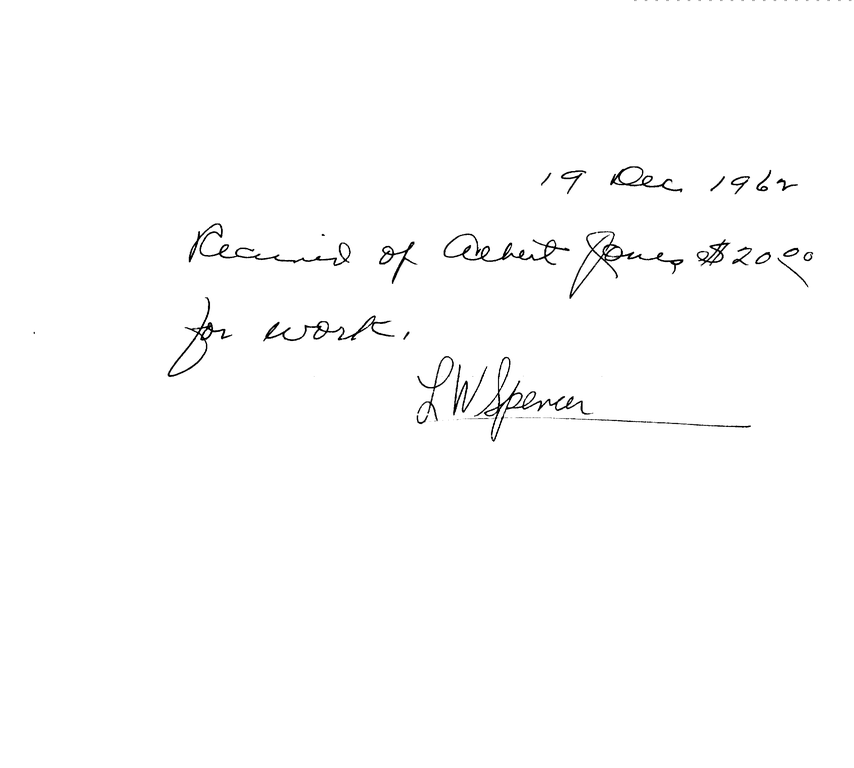 19 Dec 1962
Received of Albert Jones $20.00
for work.
L W Spencer